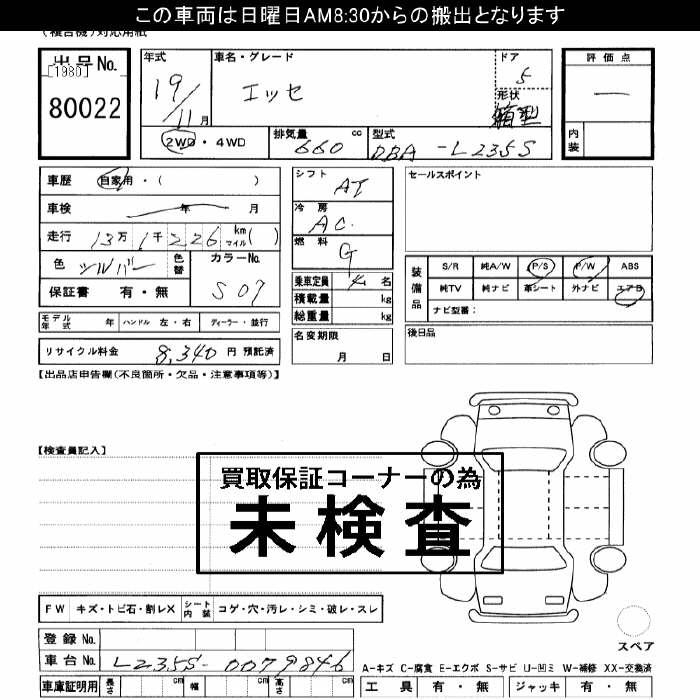 この車両は日曜日AM8:30からの搬出となります
(複合機)対応用紙
出品No.
[1980]
80022
年式
19/11月
車名・グレード
エッセ
ドア
5
形状
箱型
評価点
内装
2WD・4WD
排気量 660 cc
型式 DBA-L235S
車歴 自家用・( )
車検 年 月
走行 13万1千226 km マイル( )
色 シルバー 色替
カラーNo. S07
保証書 有・無
シフト AT
冷房 AC.
燃料 G
乗車定員 4 名
積載量 kg
総重量 kg
名変期限
月 日
セールスポイント
装備品
S/R 純A/W P/S P/W ABS
純TV 純ナビ 革シート 外ナビ エアB
ナビ型番:
後日品
モデル年式 年 ハンドル 左・右 ディーラー・並行
リサイクル料金 8,340 円 預託済
【出品店申告欄(不良箇所・欠品・注意事項等)】
【検査員記入】
買取保証コーナーの為
未検査
FW キズ・トビ石・割レX シート内装 コゲ・穴・汚レ・シミ・破レ・スレ
スペア
登録No.
車台No. L235S-0079846
A-キズ C-腐食 E-エクボ S-サビ U-凹ミ W-補修 XX-交換済
車庫証明用 長さ cm 幅 cm 高さ cm
工具 有・無 ジャッキ 有・無